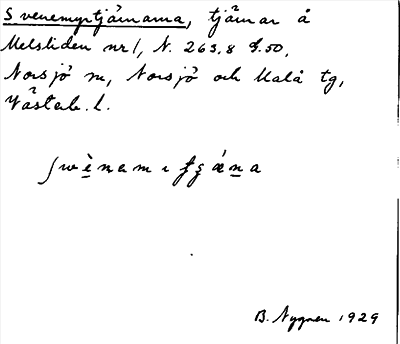 Svenemyrtjärnarna, tjärnar å
Melsliden nr 1, N. 263,8 f. 50,
Norsjö sn, Norsjö och Malå tg,
Västerb. l.
B. Nygren 1929